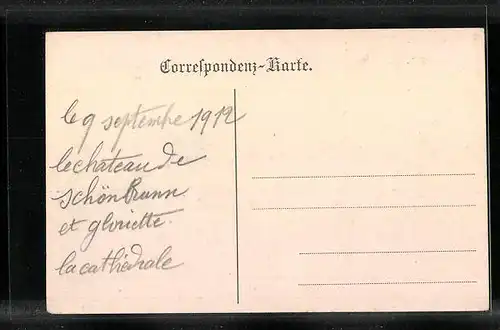 Correspondenz-Karte.
le 9 septembre 1912
le chateau de
schönbrunn
et gloriette.
la cathédrale